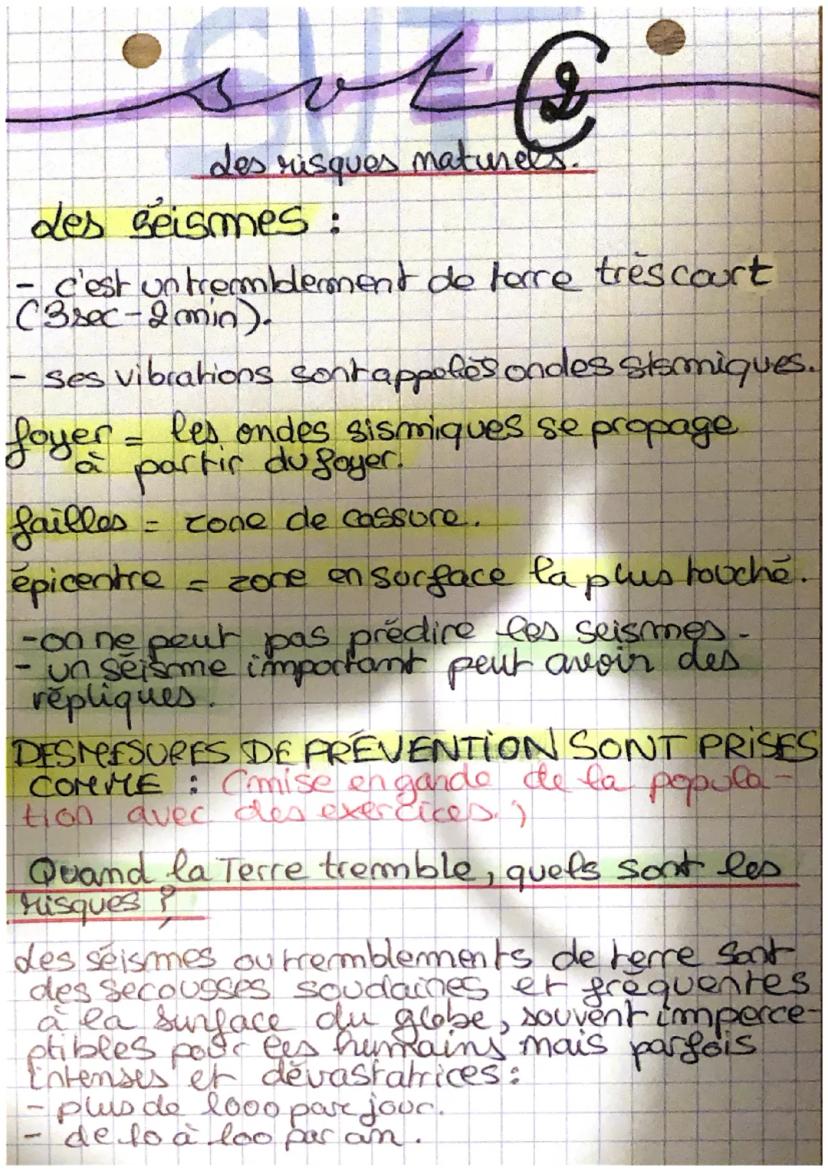 SVT
svt 2
des risques naturels.
des séismes :
- c'est un tremblement de terre très court
(3sec-2min).
- ses vibrations sont appelés ondes sismiques.
foyer = les ondes sismiques se propage
à partir du foyer.
failles = zone de cassure.
épicentre = zone en surface la plus touché.
-on ne peut pas prédire les seismes.
- un séisme important peut avoir des
répliques.
DES MESURES DE PRÉVENTION SONT PRISES
COMME : (mise en garde de la popula-
tion avec des exercices.)
Quand la Terre tremble, quels sont les
risques ?
des séismes ou tremblements de terre sont
des secousses soudaines et fréquentes
à la surface du globe, souvent imperce-
ptibles pour les humains mais parfois
intenses et dévastatrices :
- plus de 1000 par jour.
- de 10 à 100 par an.